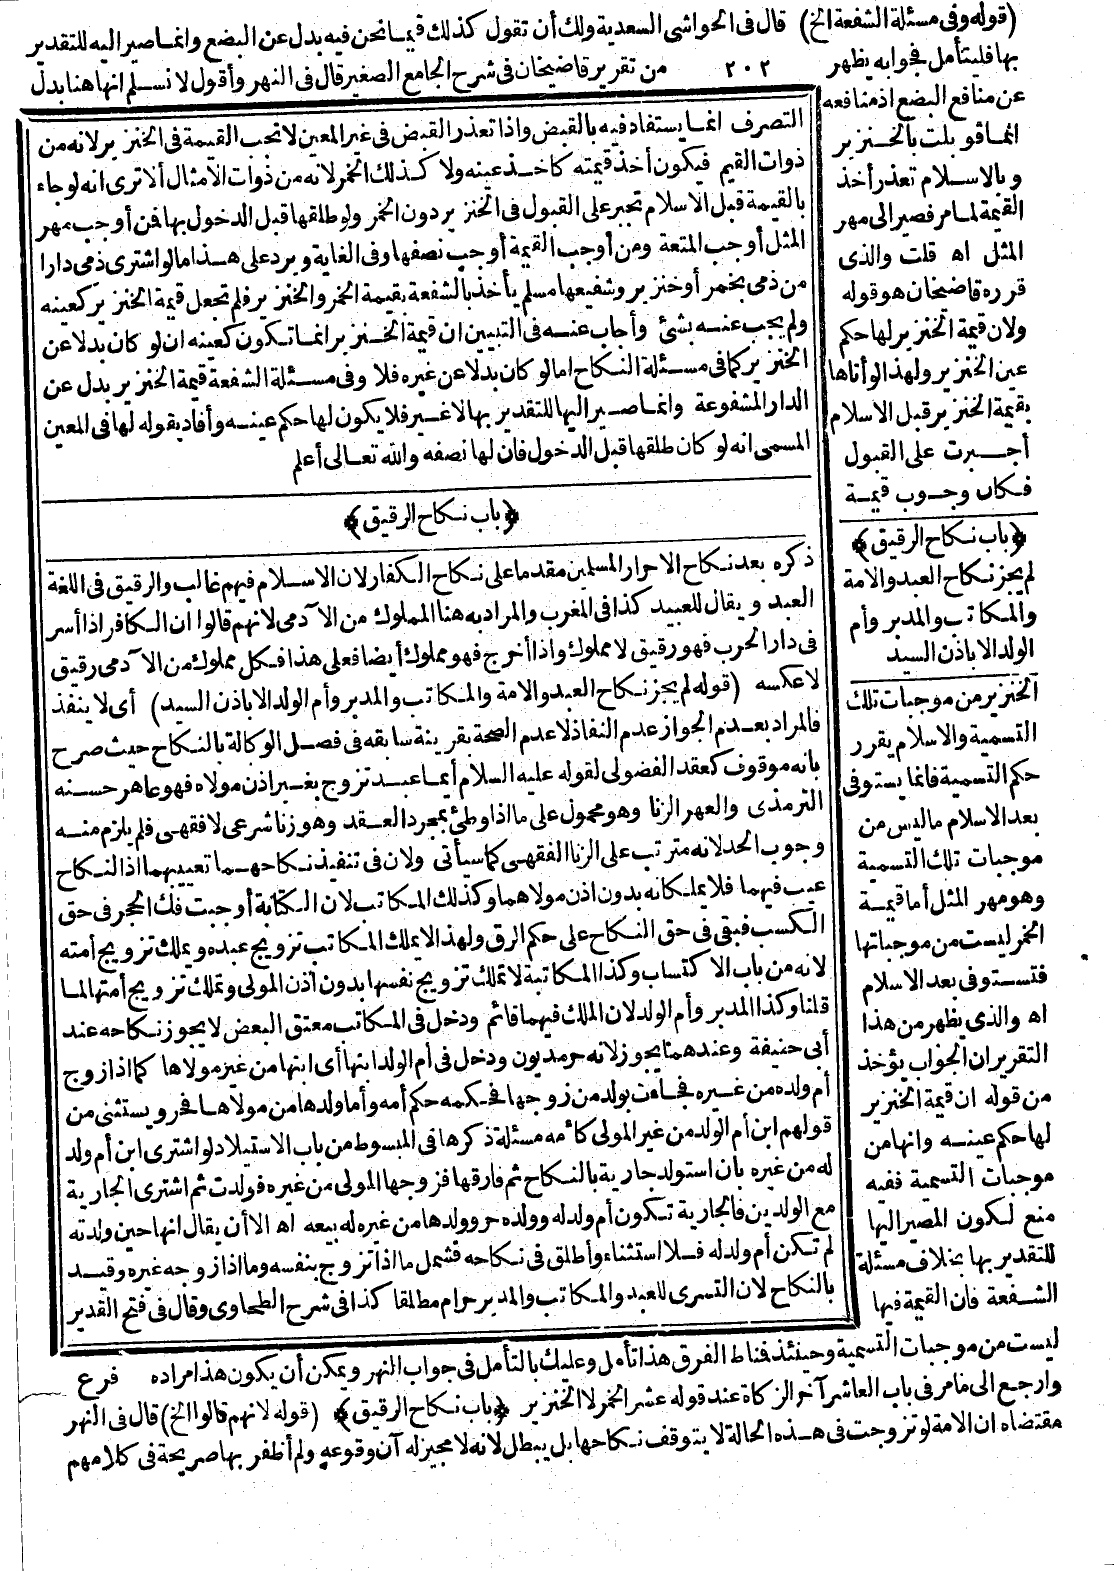 (قوله وفى مسئلة الشفعة الخ) قال فى الحواشى السعدية ولك أن تقول كذلك فيما نحن فيه بدل عن البضع وانما صير اليه للتقدير
بها فليتأمل فجوابه يظهر
٢٠٢
من تقرير قاضيخان فى شرح الجامع الصغير قال فى النهر وأقول لا نسلم انها هنا بدل
عن منافع البضع اذ منافعه
انما قوبلت بالخنزير
وبالاسلام تعذر أخذ
القيمة لما مر فصير الى مهر
المثل اه قلت والذى
قرره قاضيخان هو قوله
ولان قيمة الخنزير لها حكم
عين الخنزير ولهذا لو أتاها
بقيمة الخنزير قبل الاسلام
أجبرت على القبول
فكان وجوب قيمة
﴿باب نكاح الرقيق﴾
لم يجز نكاح العبد والامة
والمكاتب والمدبر وأم
الولد الا باذن السيد
الخنزير من موجبات تلك
التسمية والاسلام يقرر
حكم التسمية فانما يستوفى
بعد الاسلام ما ليس من
موجبات تلك التسمية
وهو مهر المثل أما قيمة
الخمر ليست من موجباتها
فتستوفى بعد الاسلام
اه والذى يظهر من هذا
التقرير ان الجواب يؤخذ
من قوله ان قيمة الخنزير
لها حكم عينه وانها من
موجبات التسمية ففيه
منع لكون المصير اليها
للتقدير بها بخلاف مسئلة
الشفعة فان القيمة فيها
التصرف انما يستفاد فيه بالقبض واذا تعذر القبض فى غير المعين لا تجب القيمة فى الخنزير لانه من
ذوات القيم فيكون أخذ قيمته كأخذ عينه ولا كذلك الخمر لانه من ذوات الامثال ألا ترى انه لو جاء
بالقيمة قبل الاسلام تجبر على القبول فى الخنزير دون الخمر ولو طلقها قبل الدخول بها فمن أوجب مهر
المثل أوجب المتعة ومن أوجب القيمة أوجب نصفها وفى الغاية ويرد على هذا ما لو اشترى ذمى دارا
من ذمى بخمر أو خنزير وشفيعها مسلم يأخذ بالشفعة بقيمة الخمر والخنزير فلم تجعل قيمة الخنزير كعينه
ولم يجب عنه بشئ وأجاب عنه فى التبيين ان قيمة الخنزير انما تكون كعينه ان لو كان بدلا عن
الخنزير كما فى مسئلة النكاح اما لو كان بدلا عن غيره فلا وفى مسئلة الشفعة قيمة الخنزير بدل عن
الدار المشفوعة وانما صير اليها للتقدير بها لا غير فلا يكون لها حكم عينه وأفاد بقوله لها فى المعين
المسمى انه لو كان طلقها قبل الدخول فان لها نصفه والله تعالى أعلم
﴿باب نكاح الرقيق﴾
ذكره بعد نكاح الاحرار المسلمين مقدما على نكاح الكفار لان الاسلام فيهم غالب والرقيق فى اللغة
العبد ويقال للعبيد كذا فى المغرب والمراد به هنا المملوك من الآدمى لانهم قالوا ان الكافر اذا أسر
فى دار الحرب فهو رقيق لا مملوك واذا أخرج فهو مملوك أيضا فعلى هذا فكل مملوك من الآدمى رقيق
لا عكسه (قوله لم يجز نكاح العبد والامة والمكاتب والمدبر وأم الولد الا باذن السيد) أى لا ينفذ
فالمراد بعدم الجواز عدم النفاذ لا عدم الصحة بقرينة سابقه فى فصل الوكالة بالنكاح حيث صرح
بانه موقوف كعقد الفضولى لقوله عليه السلام أيما عبد تزوج بغير اذن مولاه فهو عاهر حسنه
الترمذى والعهر الزنا وهو محمول على ما اذا وطئ بمجرد العقد وهو زنا شرعى لا فقهى فلم يلزم منه
وجوب الحد لانه مترتب على الزنا الفقهى كما سيأتى ولان فى تنفيذ نكاحهما تعييبهما اذ النكاح
عيب فيهما فلا يملكانه بدون اذن مولاهما وكذلك المكاتب لان الكتابة أوجبت فك الحجر فى حق
الكسب فبقى فى حق النكاح على حكم الرق ولهذا لا يملك المكاتب تزويج عبده ويملك تزويج أمته
لانه من باب الاكتساب وكذا المكاتبة لا تملك تزويج نفسها بدون اذن المولى وتملك تزويج أمتها لما
قلنا وكذا المدبر وأم الولد لان الملك فيهما قائم ودخل فى المكاتب معتق البعض لا يجوز نكاحه عند
أبى حنيفة وعندهما يجوز لانه حر مديون ودخل فى أم الولد ابنها أى ابنها من غير مولاها كما اذا زوج
أم ولده من غيره فجاءت بولد من زوجها فحكمه حكم أمه وأما ولدها من مولاها فحر ويستثنى من
قولهم ابن أم الولد من غير المولى كأمه مسئلة ذكرها فى المبسوط من باب الاستيلاد لو اشترى ابن أم ولد
له من غيره بان استولد جارية بالنكاح ثم فارقها فزوجها المولى من غيره فولدت ثم اشترى الجارية
مع الولدين فالجارية تكون أم ولد له وولده حر وولدها من غيره له بيعه اه الا أن يقال انها حين ولدته
لم تكن أم ولد له فلا استثناء وأطلق فى نكاحه فشمل ما اذا تزوج بنفسه وما اذا زوجه غيره وقيد
بالنكاح لان التسرى للعبد والمكاتب والمدبر حرام مطلقا كذا فى شرح الطحاوى وقال فى فتح القدير
ليست من موجبات التسمية وحينئذ فناط الفرق هذا تأمل وعليك بالتأمل فى جواب النهر ويمكن أن يكون هذا مراده
وارجع الى ما مر فى باب العاشر آخر الزكاة عند قوله عشر الخمر لا الخنزير ﴿باب نكاح الرقيق﴾ (قوله لانهم قالوا الخ) قال فى النهر فرع
مقتضاه ان الامة لو تزوجت فى هذه الحالة لا يتوقف نكاحها بل يبطل لانه لا مجيز له آن وقوعه ولم أظفر بها صريحة فى كلامهم